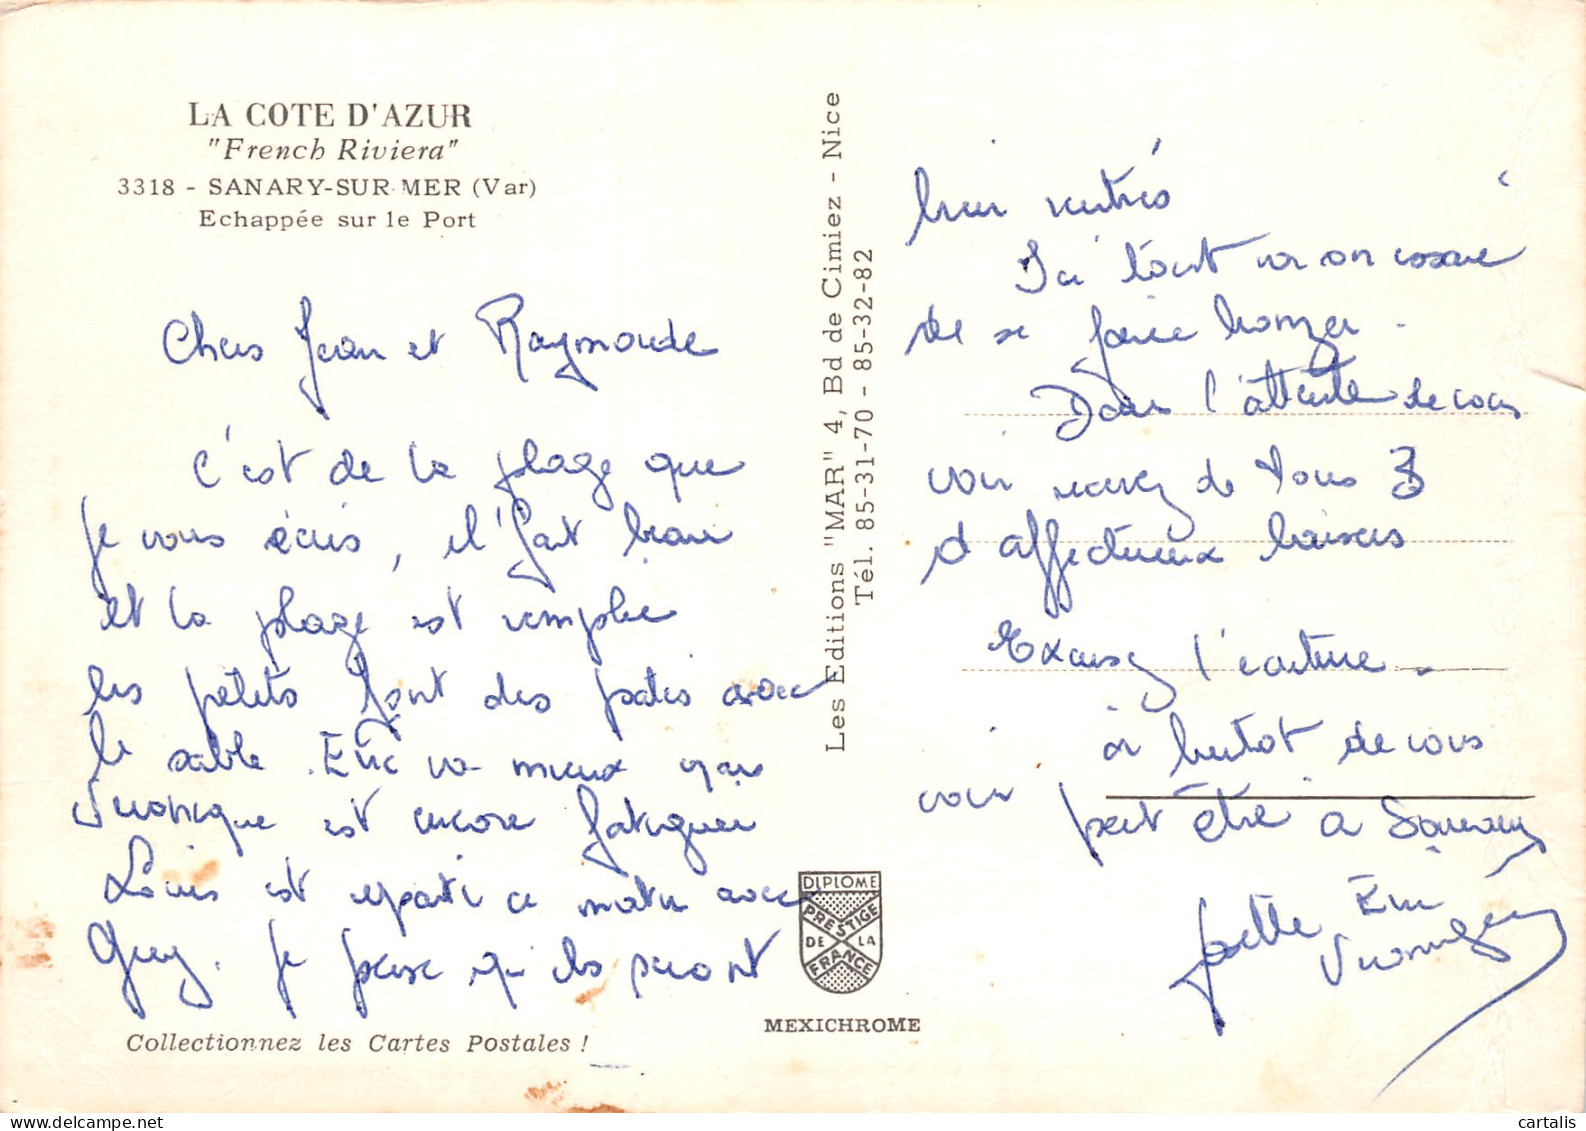 LA COTE D'AZUR
"French Riviera"
3318 - SANARY-SUR-MER (Var)
Echappée sur le Port
Chers Jean et Raymonde
C'est de la plage que
je vous écris, il fait beau
et la plage est remplie
les petits font des patés avec
le sable. Eric va mieux mais
Veronique est encore fatiguée
Louis est reparti ce matin avec
Guy. Je pense qu'ils seront
Collectionnez les Cartes Postales !
Les Editions "MAR" 4, Bd de Cimiez - Nice
Tél. 85-31-70 - 85-32-82
DIPLOME
PRESTIGE
DE LA
FRANCE
MEXICHROME
bien rentrés
Ici tout on essaie
de se faire bronzer.
Dans l'attente de vous
voir recevez de tous 3
d'affectueux baisers
Excusez l'écriture
à bientot de vous
voir peut être à Sanary
Josette Eric
Veronique
cartalis